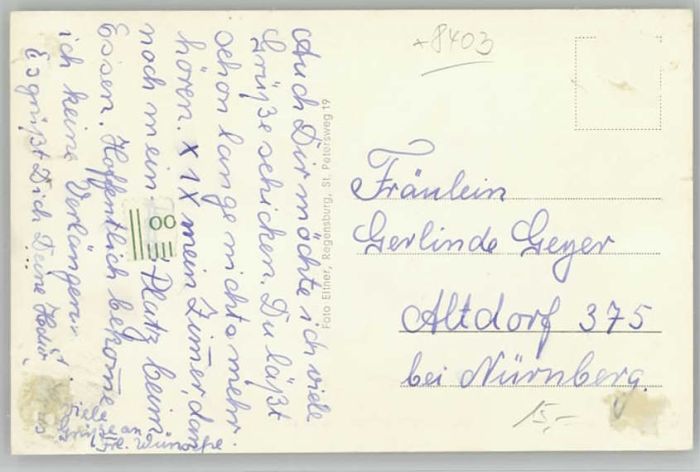 Auch Dir möchte ich viele
Grüße schicken. Du läßt
schon lange nichts mehr
hören. X 1X mein Zimmer, dan
noch mein Platz beim
Essen. Hoffentlich bekome
ich keine Verlängerung.
Es grüßt Dich Deine
Viele
Grüße an
Frl. Wünsche.
Foto Eltner, Regensburg, St. Petersweg 19
+8403
Fräulein
Gerlinde Geyer
Altdorf 375
bei Nürnberg.
15,-